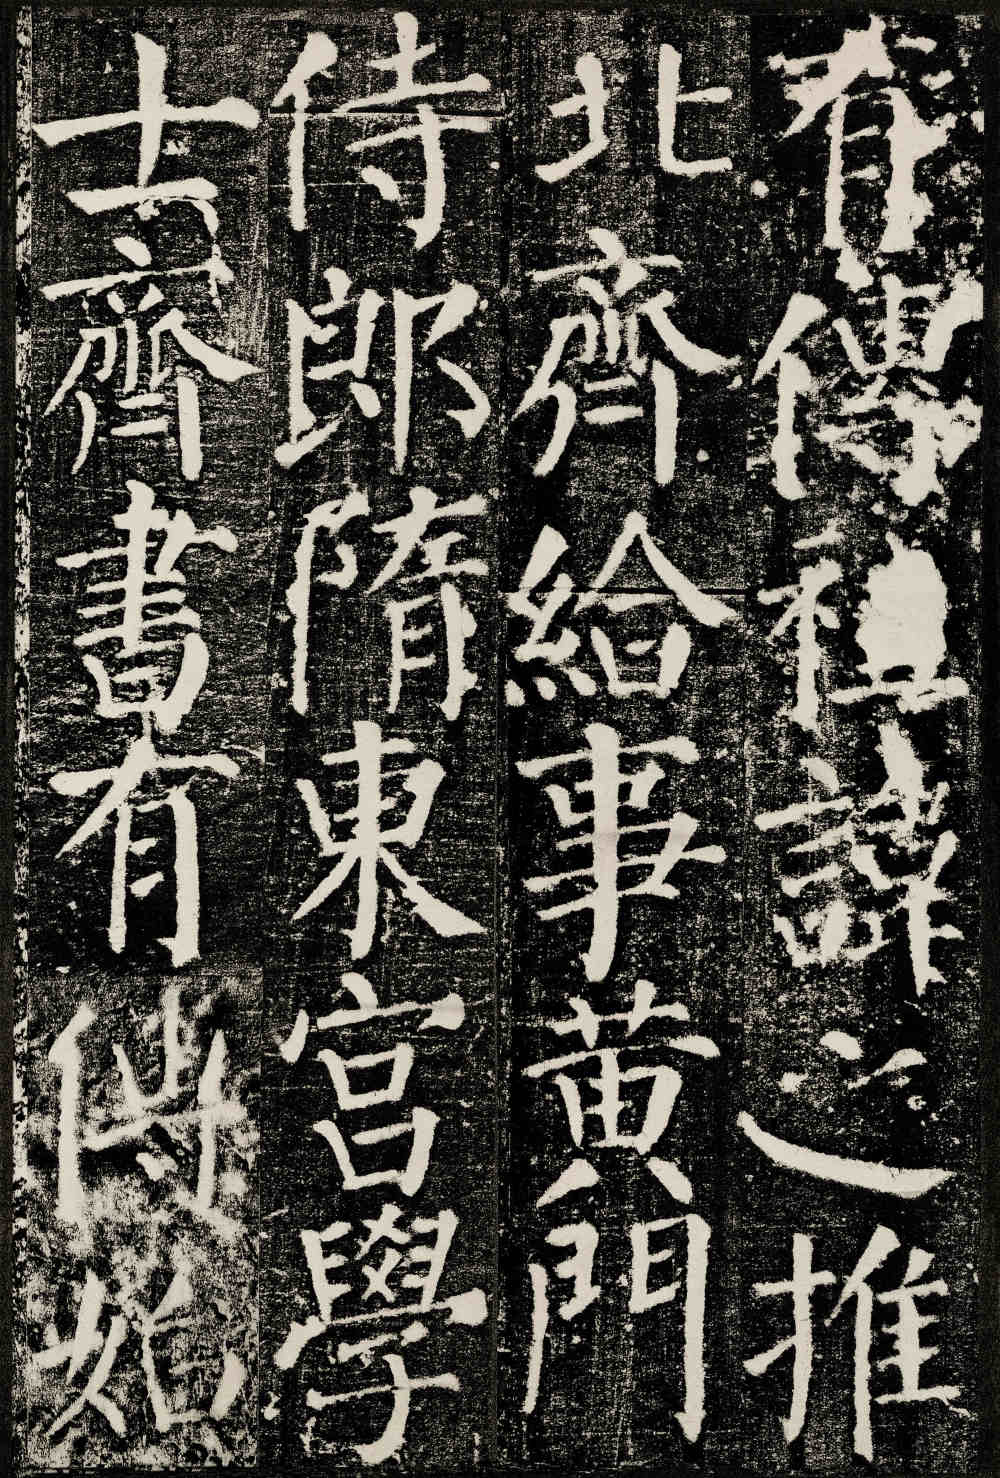 有傳祖諱之推
北齊給事黄門
侍郎隋東宮學
士齊書有傳始